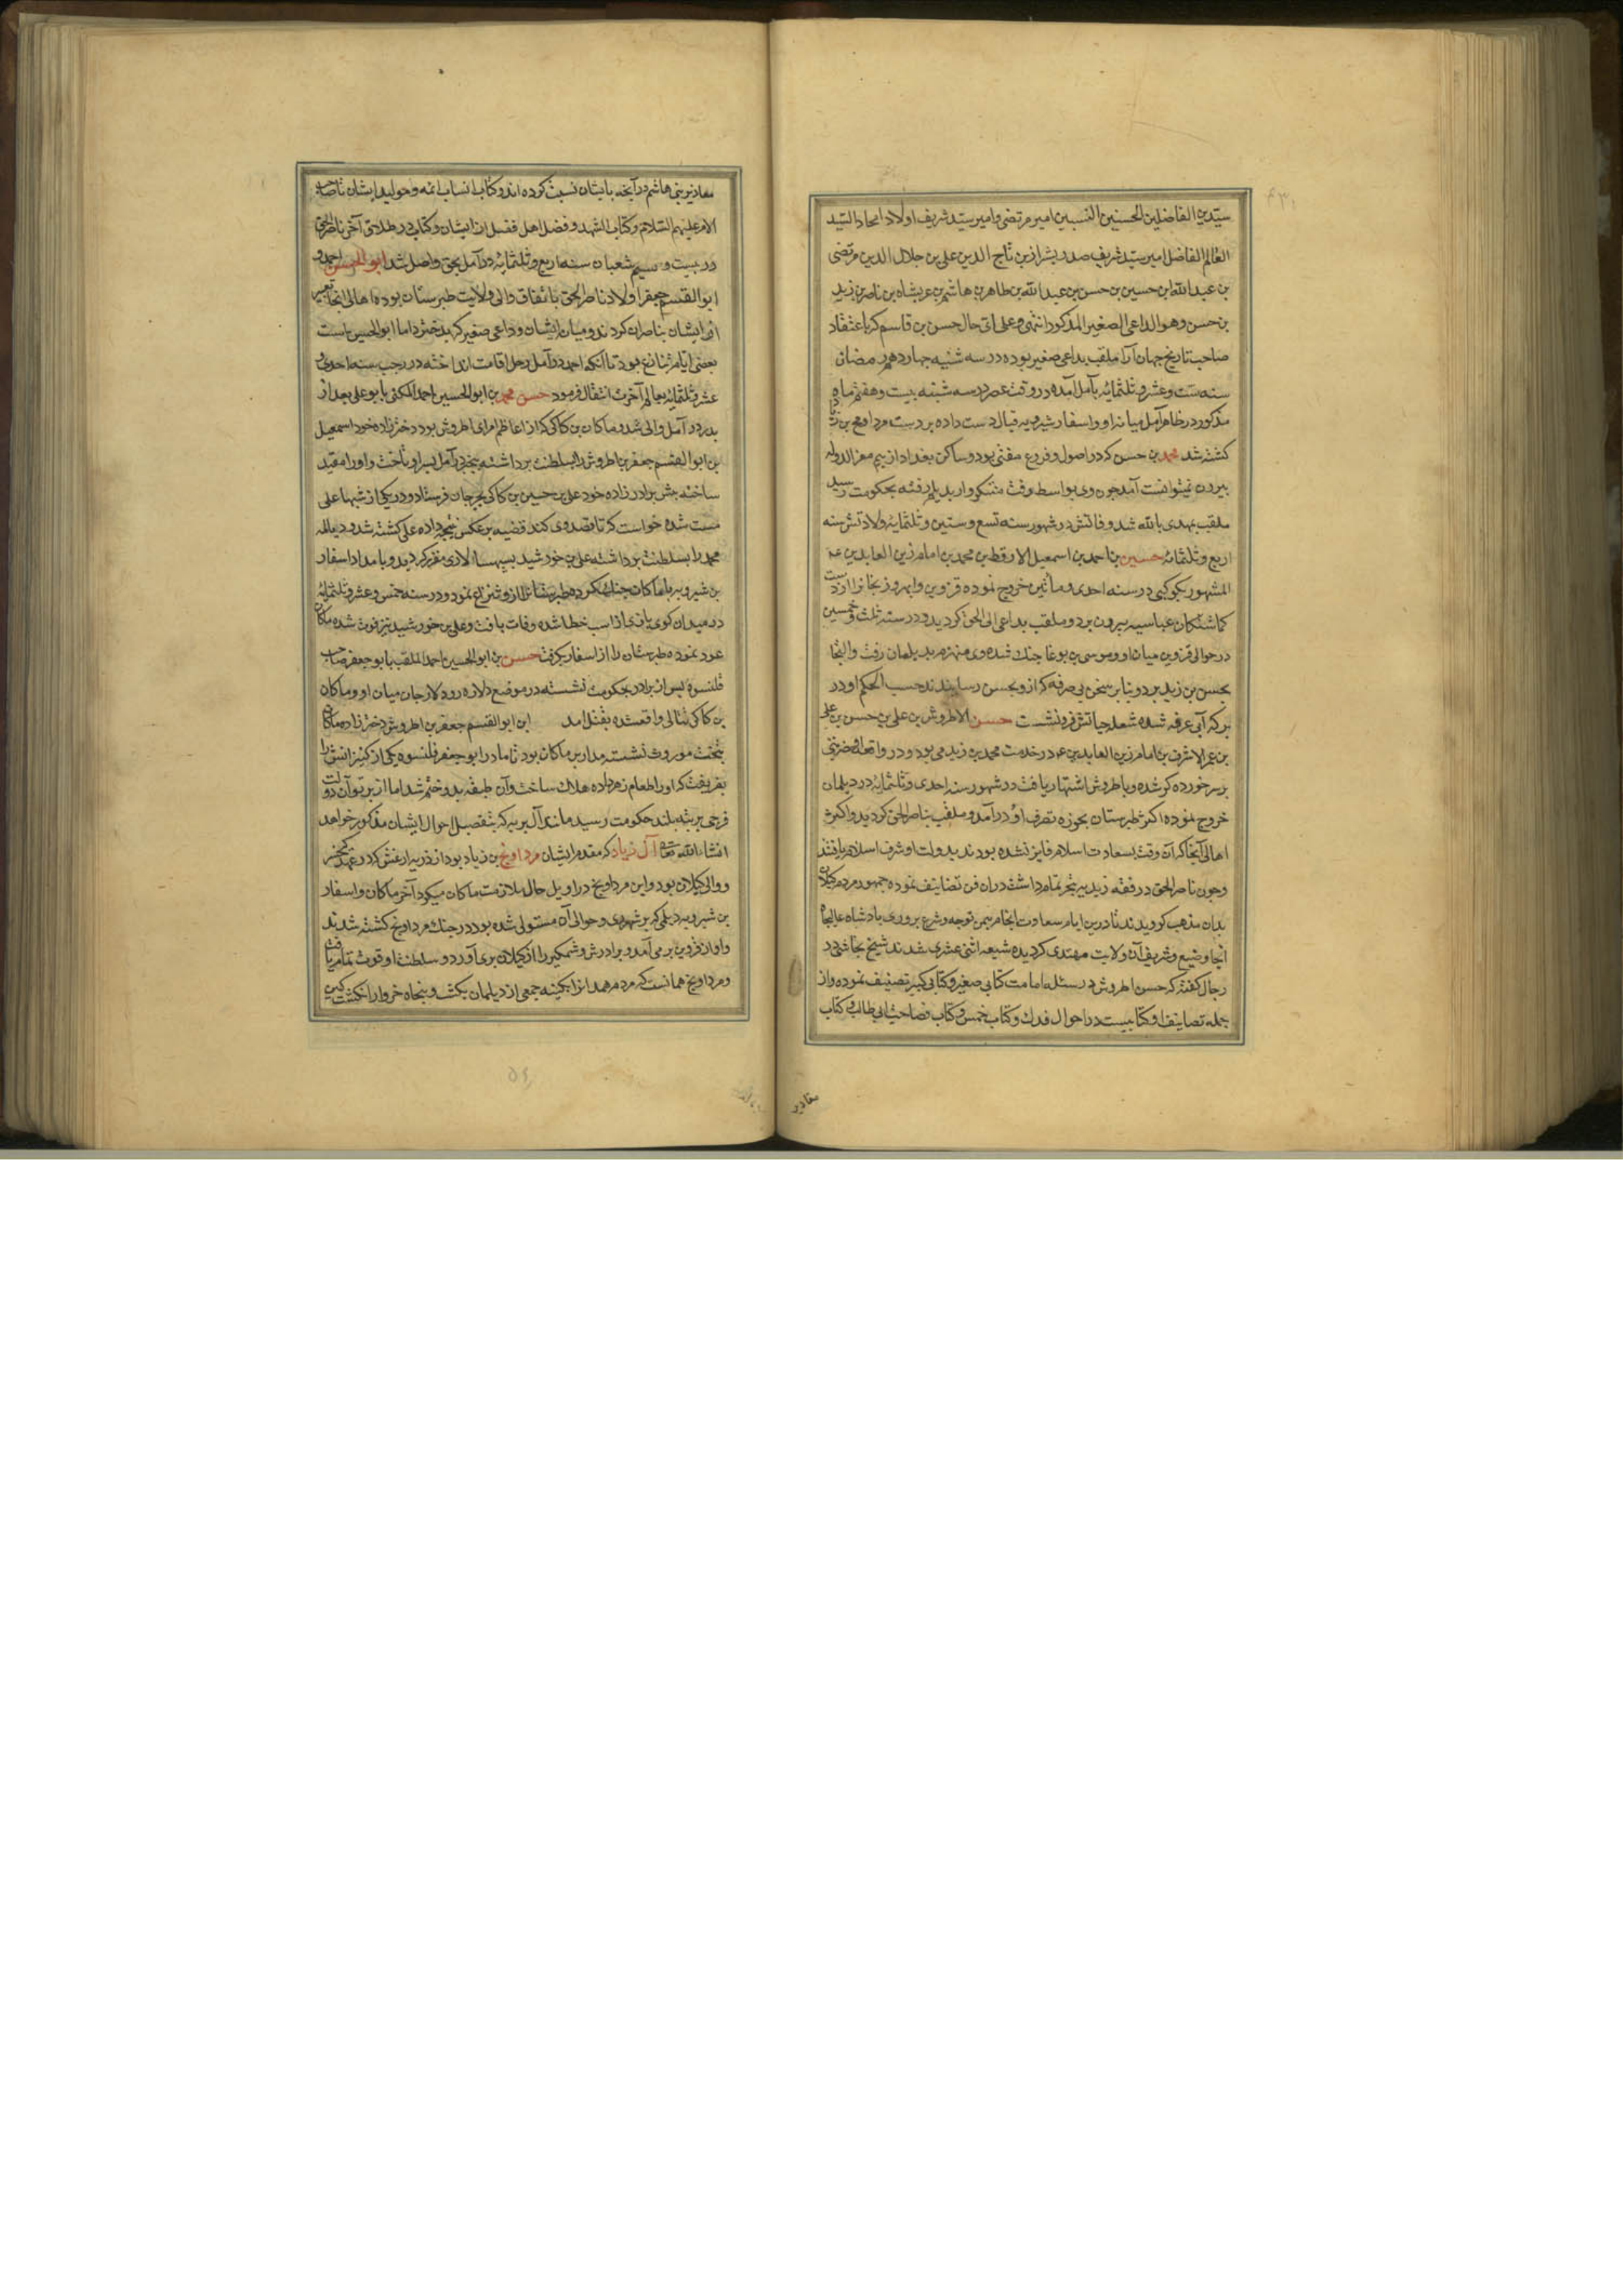 سیدین الفاضلین الحسنین النسبین امیر مرتضی و امیر سید شریف اولاد امجاد السید
العالم الفاضل امیر سید شریف صدر بشراز بن تاج الدین علی بن جلال الدین مرتضی
بن عبد الله بن حسین بن حسن بن عبد الله بن طاهر بن هاشم بن عربشاه بن ناصر بن زید
بن حسن وهو الداعی الصغیر المذکور انتهی و علی ای حال حسن بن قاسم که باعتقاد
صاحب تاریخ جهان آرا ملقب بداعی صغیر بوده در سه شنبه چهاردهم رمضان
سنه ست و عشر و ثلثمائه بآمل آمده در وقت عصر در سه شنبه بیست و هفتم ماه
مذکور در ظاهر آمل میانه او و اسفار شیرویه قتال دست داده بر دست مرداویج بن زیاد
کشته شد محمد بن حسن که در اصول و فروع مفتی بود و ساکن بغداد از بیم معز الدوله
بیرون نمیتوانست آمد چون وی بواسط رفت متنکروار بدیلم رفته بحکومت رسید
ملقب بمهدی بالله شد و فاتش در شهور سنه تسع و ستین و ثلثمایه ولادتش سنه
اربع و ثلثمائه حسین بن احمد بن اسمعیل الارقط بن محمد بن امام زین العابدین عه
المشهور بکوکبی در سنه احدی و مأتین خروج نموده قزوین و ابهر و زنجانرا از دست
کماشتکان عباسیه بیرون برد و ملقب بداعی الی الحق کردید و در سنه ثلث و خمسین
در حوالی قزوین میان او و موسی بن بوغا جنک شده وی منهزم بدیلمان رفت و التجا
بحسن بن زید برد و بنا بر سخن بی صرفه که از و بحسن رسانیدند حسب الحکم او در
برکه آبی غرقه شده شعله حیاتش فرو نشست حسن الاطروش بن علی بن حسن بن علی
بن عمر الاشرف بن امام زین العابدین عه در خدمت محمد بن زید می بود و در واقعه او ضربتی
بر سر خورده کر شده و باطروش اشتهار یافت در شهور سنه احدی و ثلثمائه در دیلمان
خروج نموده اکثر طبرستان بحوزه تصرف او در آمد و ملقب بناصر الحق کردید و اکثر
اهالی آنجا که آن وقت بسعادت اسلام فایز نشده بودند بدولت او شرف اسلام یافتند
و چون ناصر الحق در فقه زیدیه تبحر تمام داشت در ان فن تصانیف نموده جمهور مردم کیلان
بدان مذهب کرویدند تا درین ایام سعادت انجام بیمن توجه و شرع پروری پادشاه عالیجاه
انجا وضیع و شریف آن ولایت مهتدی کردیده شیعه اثنی عشری شدند شیخ نجاشی در
رجال کفته که حسن اطروش در مسئله امامت کتابی صغیر و کتابی کبیر تصنیف نموده و از
جمله تصانیف او کتابیست در احوال فدک و کتاب خمس و کتاب فصاحت ابی طالب و کتاب
مقادیر
مقادیر بنی هاشم و آنچه بایشان نسبت کرده اند و کتاب انساب ائمه و موالید ایشان تا صاحب
الامر علیهم السلام و کتاب الشهدا و فضل اهل فضل از ایشان و کتابی در طلاق آخر ناصر الحق
در بیست و سیم شعبان سنه اربع و ثلثمائه در آمل بحق واصل شد ابو الحسین احمد و
ابو القسم جعفر اولاد ناصر الحق باتفاق والی ولایت طبرستان بوده اهالی انجا تعبیر
از ایشان بناصران کردند و میان ایشان و داعی صغیر که پدر دختر داما ابو الحسین است
بعضی ایام تنازع بود تا آنکه احمد در آمل رحل اقامت انداخته در رجب سنه احدی و
عشر و ثلثمائه بعالم آخرت انتقال فرمود حسن محمد بن ابو الحسین احمد المکنی بابو علی بعد از
پدر در آمل والی شد و ماکان بن کاکی که از اعاظم امرای اطروش بود دختر زاده خود اسمعیل
بن ابو القسم جعفر بن اطروش را بسلطنت برداشته بر آمل بسر او تاخت و او را مقید
ساخته پیش برادر زاده خود علی بن حسین بن کاکی بجرجان فرستاد و در یکی از شبها علی
مست شده خواست که تا قصد وی کند قضیه بر عکس نتیجه داده علی کشته شد و دیالمه
محمد را بسلطنت برداشته علی بن خورشید بسپهسالاری مقرر کردید و بامداد اسفار
بن شیرویه با ماکان جنک کرده طبرستانرا از و انتزاع نمود و در سنه خمس و عشر و ثلثمایه
در میدان کوی بازی از اسب خطا شده وفات یافت و علی بن خورشید نیز فوت شده ماکان
عود نموده طبرستان را از اسفار بگرفت حسن بن ابو الحسین احمد الملقب بابو جعفر صاحب
قلنسوه پس از برادر بحکومت نشسته در موضع دلاره رود لارجان میان او و ماکان
بن کاکی قتالی واقعشده بقتل امد ابن ابو القسم جعفر بن اطروش دختر زاده ماکان
بتخت موروث نشسته مدار بر ماکان بود تا مادر ابو جعفر قلنسوه یکی از کنیزانش را
بفریفت که او را طعام زهر داده هلاک ساخت و آن طبقه بدو ختم شد اما از پرتو آن دولت
فرجی برتبه بلند حکومت رسید مانند آل بویه که بتفصیل احوال ایشان مذکور خواهد
انشاء الله تعالی آل زیاد که مقدم ایشان مرداویج بن زیاد بود از ذریه ارغش که در عهد کیخسرو
والی کیلان بود و این مرداویج در اوایل حال ملازمت ماکان میکرد آخر ماکان و اسفار
بن شیرویه دیلمی که بر شهر ری و حوالی آن مستولی شده بود در جنک مرداویج کشته شدند
و او از قزوین بر می آمد و برادرش وشمکیر را از کیلان بری آورد و سلطنت او قوت تمام یافت
و مرداویج همانست که مردم همدانرا بکینه جمعی از دیلمان بکشت و پنجاه خروار